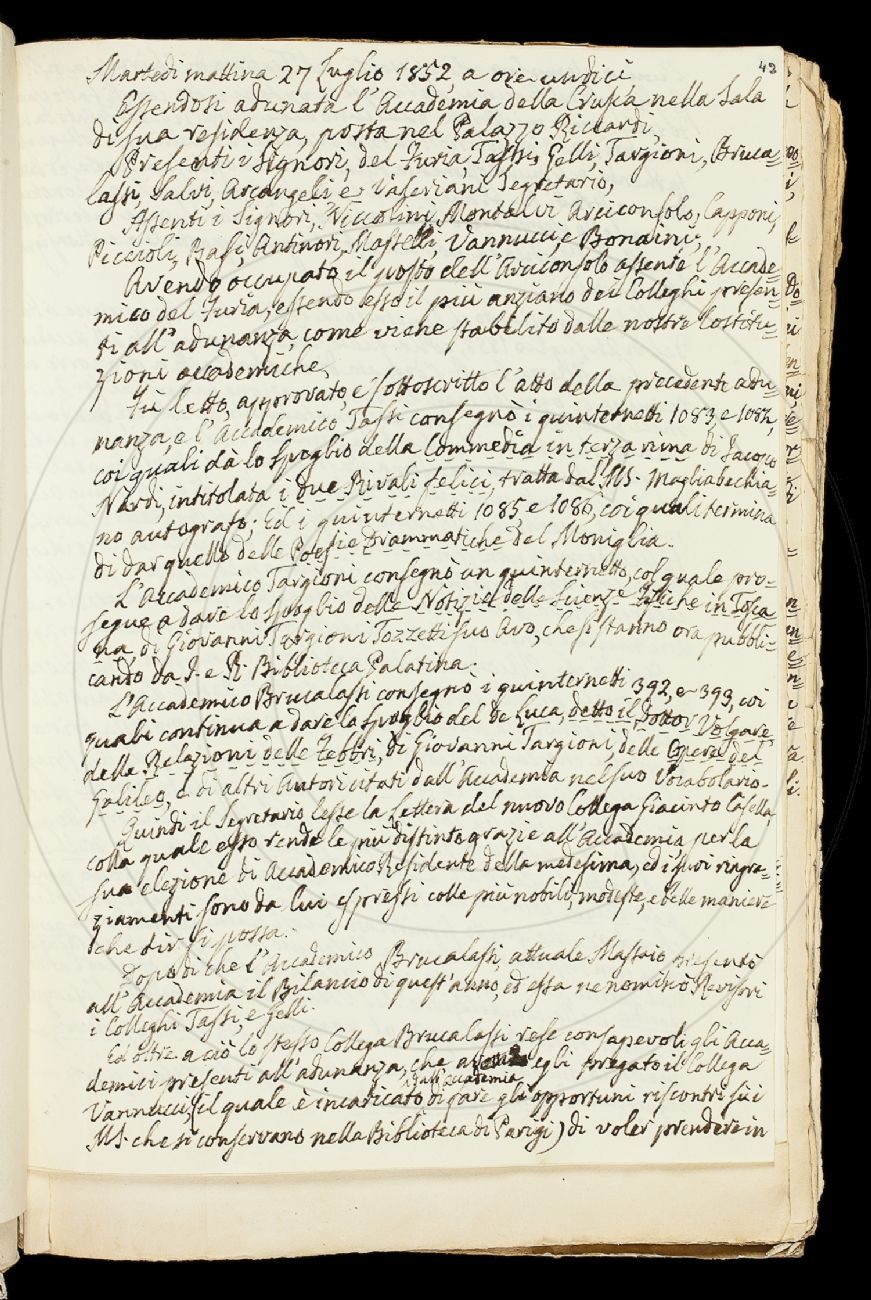 42
Martedì mattina 27 Luglio 1852 a ore undici
Essendosi adunata l'Accademia della Crusca nella Sala
di sua residenza, posta nel Palazzo Riccardi,
Presenti i Signori, del Furia, Tassi, Gelli, Targioni, Bruca=
lassi, Salvi, Arcangeli e Valeriani Segretario,
Assenti i Signori, Niccolini, Montalvi Arciconsolo, Capponi,
Piccioli, Basi, Antinori, Mastelli, Vannucci, e Bonaini;
Avendo occupato il posto dell'Arciconsolo assente l'Accade=
mico del Furia, essendo esso il più anziano dei Colleghi presen=
ti all'adunanza, come viene stabilito dalle nostre Costitu=
zioni accademiche,
Fù letto, approvato, e sottoscritto l'atto della precedente adu=
nanza, e l'Accademico Tassi consegnò i quinternetti 1083 e 1084,
coi quali dà lo spoglio della Commedia in terza rima di Jacopo
Nardi, intitolata i due Rivali felici, tratta dal MS. Magliabechia=
no autografo; Ed i quinternetti 1085 e 1086, coi quali termina
di dar quello delle Poesie Drammatiche del Moniglia.
L'Accademico Targioni consegnò un quinternetto, col quale pro=
segue a dare lo spoglio delle Notizie delle Scienze Fisiche in Tosca
na di Giovanni Targioni Tozzetti suo Avo, che si stanno ora pubbli=
cando da I. e R. Biblioteca Palatina.
L'Accademico Brucalassi consegnò i quinternetti 392, e 393, coi
quali continua a dare lo spoglio del De Luca, detto il Dottor Volgare,
della Relazioni delle Febbri, di Giovanni Targioni, delle Opere del
Galileo, e di altri Autori citati dall'Accademia nel suo Vocabolario.
Quindi il Segretario lesse la Lettera del nuovo Collega Giacinto Casella,
colla quale esso rende le più distinte grazie all'Accademia per la
sua elezione di Accademico Residente della medesima, ed i suoi ringra=
ziamenti sono da lui espressi colle più nobili, modeste, e belle maniere
che dir si possa.
Dopo di che l'Accademico Brucalassi attuale Massaio presentò
all'Accademia il Bilancio di quest'anno, ed essa ne nominò Revisori
i Colleghi Tassi, e Gelli.
Ed oltre a ciò lo stesso Collega Brucalassi rese consapevoli gli Acca=
demici presenti all'adunanza, che avendo egli pregato il Collega
dall'Accademia
Vannucci (il quale è incaricato di fare gli opportuni riscontri sui
MS. che si conservano nella Biblioteca di Parigi) di voler prendere in